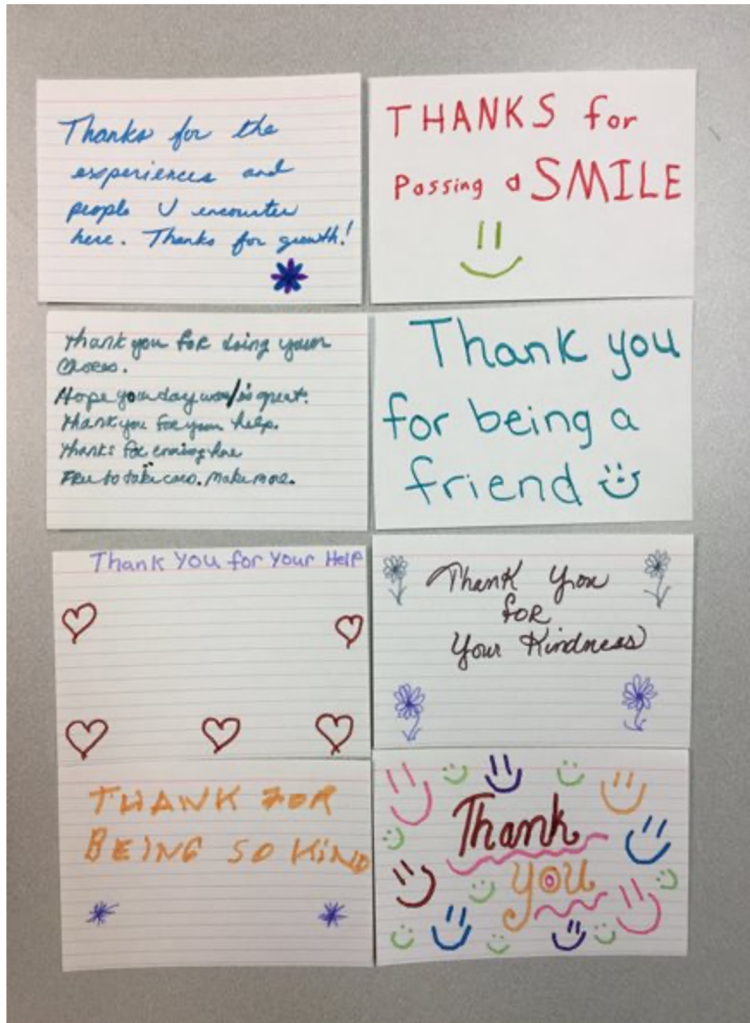 Thanks for the
experiences and
people U encounter
here. Thanks for growth!
THANKS for
Passing a SMILE
Thank you for doing your
Chores.
Hope your day was/is great.
Thank you for your help.
Thanks for coming here
Free to take cards. Make more.
Thank you
for being a
friend
Thank You for Your Help
Thank You
for
Your Kindness
THANK FOR
BEING SO KIND
Thank
you